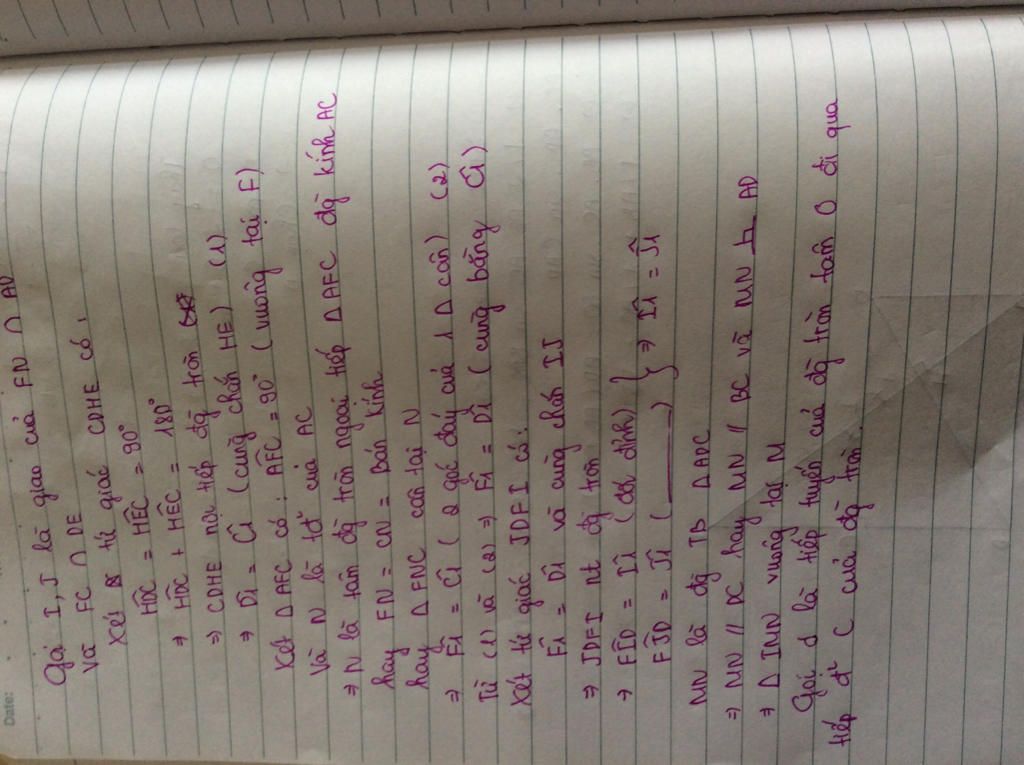 Date:
Gọi I, J là giao của FN ∩ AD
và FC ∩ DE
Xét tứ giác CDHE có:
HD̂C = HÊC = 90°
⇒ HD̂C + HÊC = 180°
⇒ CDHE nội tiếp đg tròn
⇒ D̂1 = Ĉ1 (cùng chắn HE) (1)
Xét ΔAFC có: AF̂C = 90° (vuông tại F)
Và N là tđ của AC
⇒ N là tâm đg tròn ngoại tiếp ΔAFC đg kính AC
hay FN = CN = Bán kính
hay ΔFNC cân tại N
⇒ F̂1 = Ĉ1 (2 góc đáy của 1 Δ cân) (2)
Từ (1) và (2) ⇒ F̂1 = D̂1 (cùng bằng Ĉ1)
Xét tứ giác JDFI có:
F̂1 = D̂1 và cùng chắn IJ
⇒ JDFI nt đg tròn
→ FÎD = Î1 (đđ đỉnh)
FĴD = Ĵ1 ( ______ ) } ⇒ Î1 = Ĵ1
MN là đg TB ΔADC
⇒ MN // DC hay MN // BC và MN ⊥ AD
⇒ ΔIMN vuông tại M
Gọi d là tiếp tuyến của đg tròn tâm O đi qua
tiếp đ' C của đg tròn.